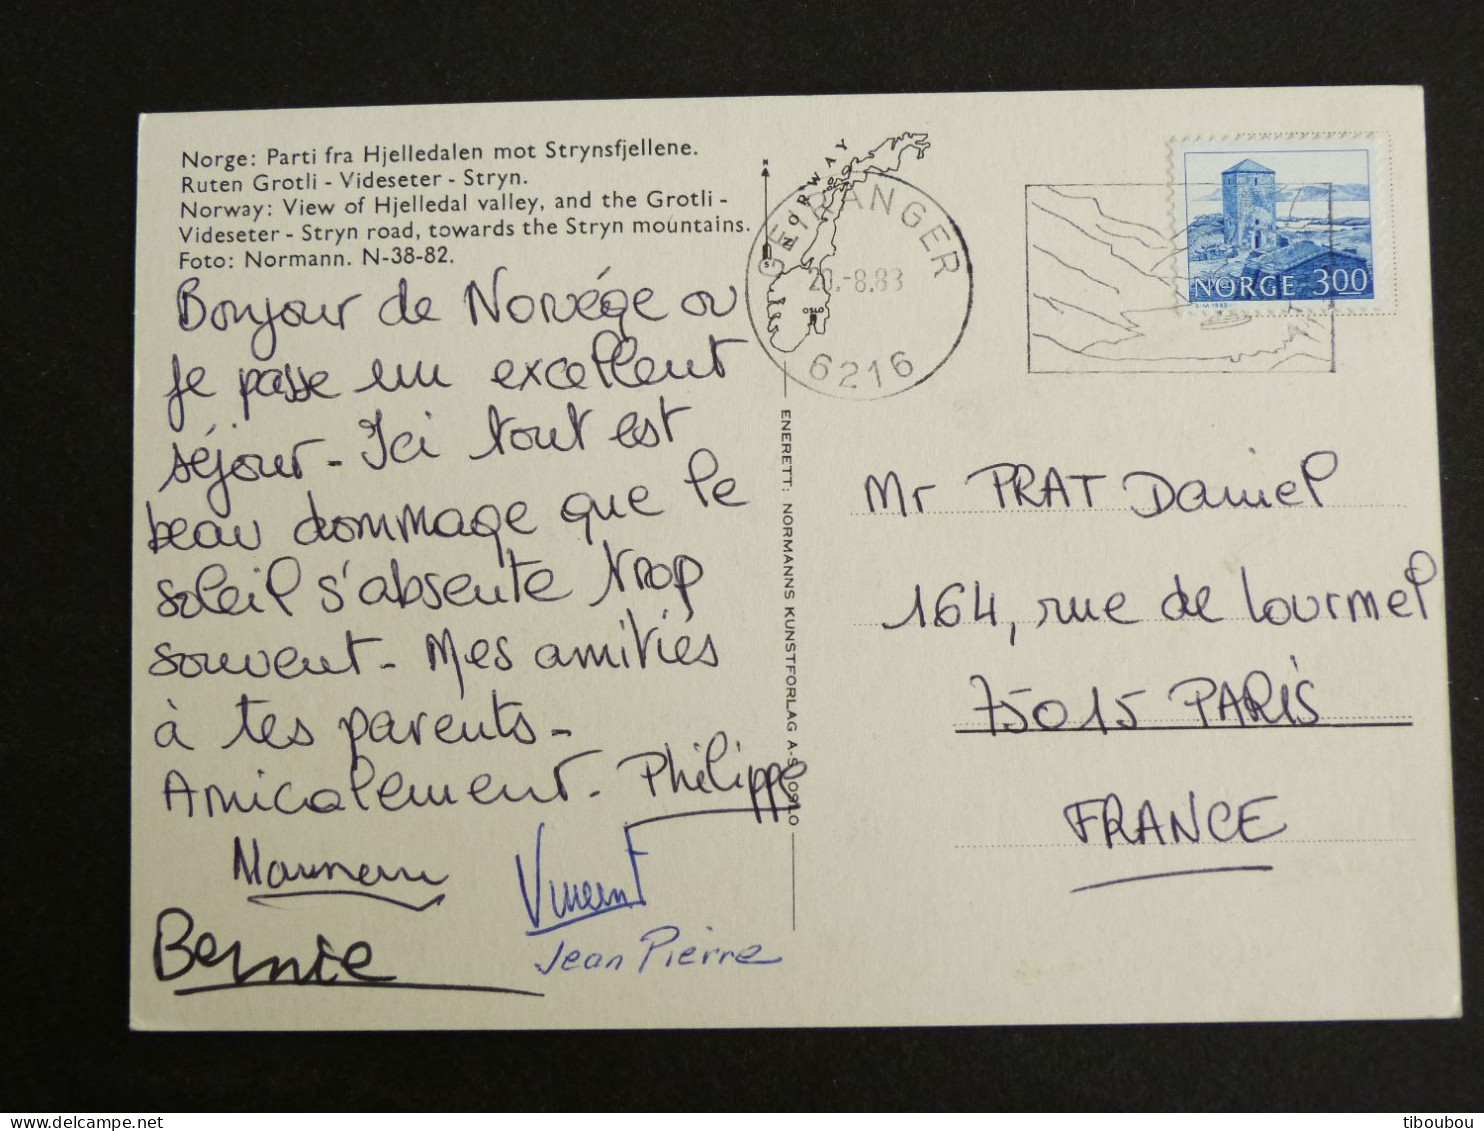 Norge: Parti fra Hjelledalen mot Strynsfjellene.
Ruten Grotli - Videseter - Stryn.
Norway: View of Hjelledal valley, and the Grotli -
Videseter - Stryn road, towards the Stryn mountains.
Foto: Normann. N-38-82.
Bonjour de Norvége ou
je passe un excellent
séjour - Ici tout est
beau dommage que le
soleil s'absente trop
souvent - Mes amitiés
à tes parents -
Amicalement - Philippe
Vincent
Bernie
Jean Pierre
ENERETT: NORMANNS KUNSTFORLAG A-S OSLO
NORWAY
N
S
OSLO
GEIRANGER
20.-8.83
6216
NORGE 300
Mr PRAT Daniel
164, rue de Lourmel
75015 PARIS
FRANCE
tiboubou